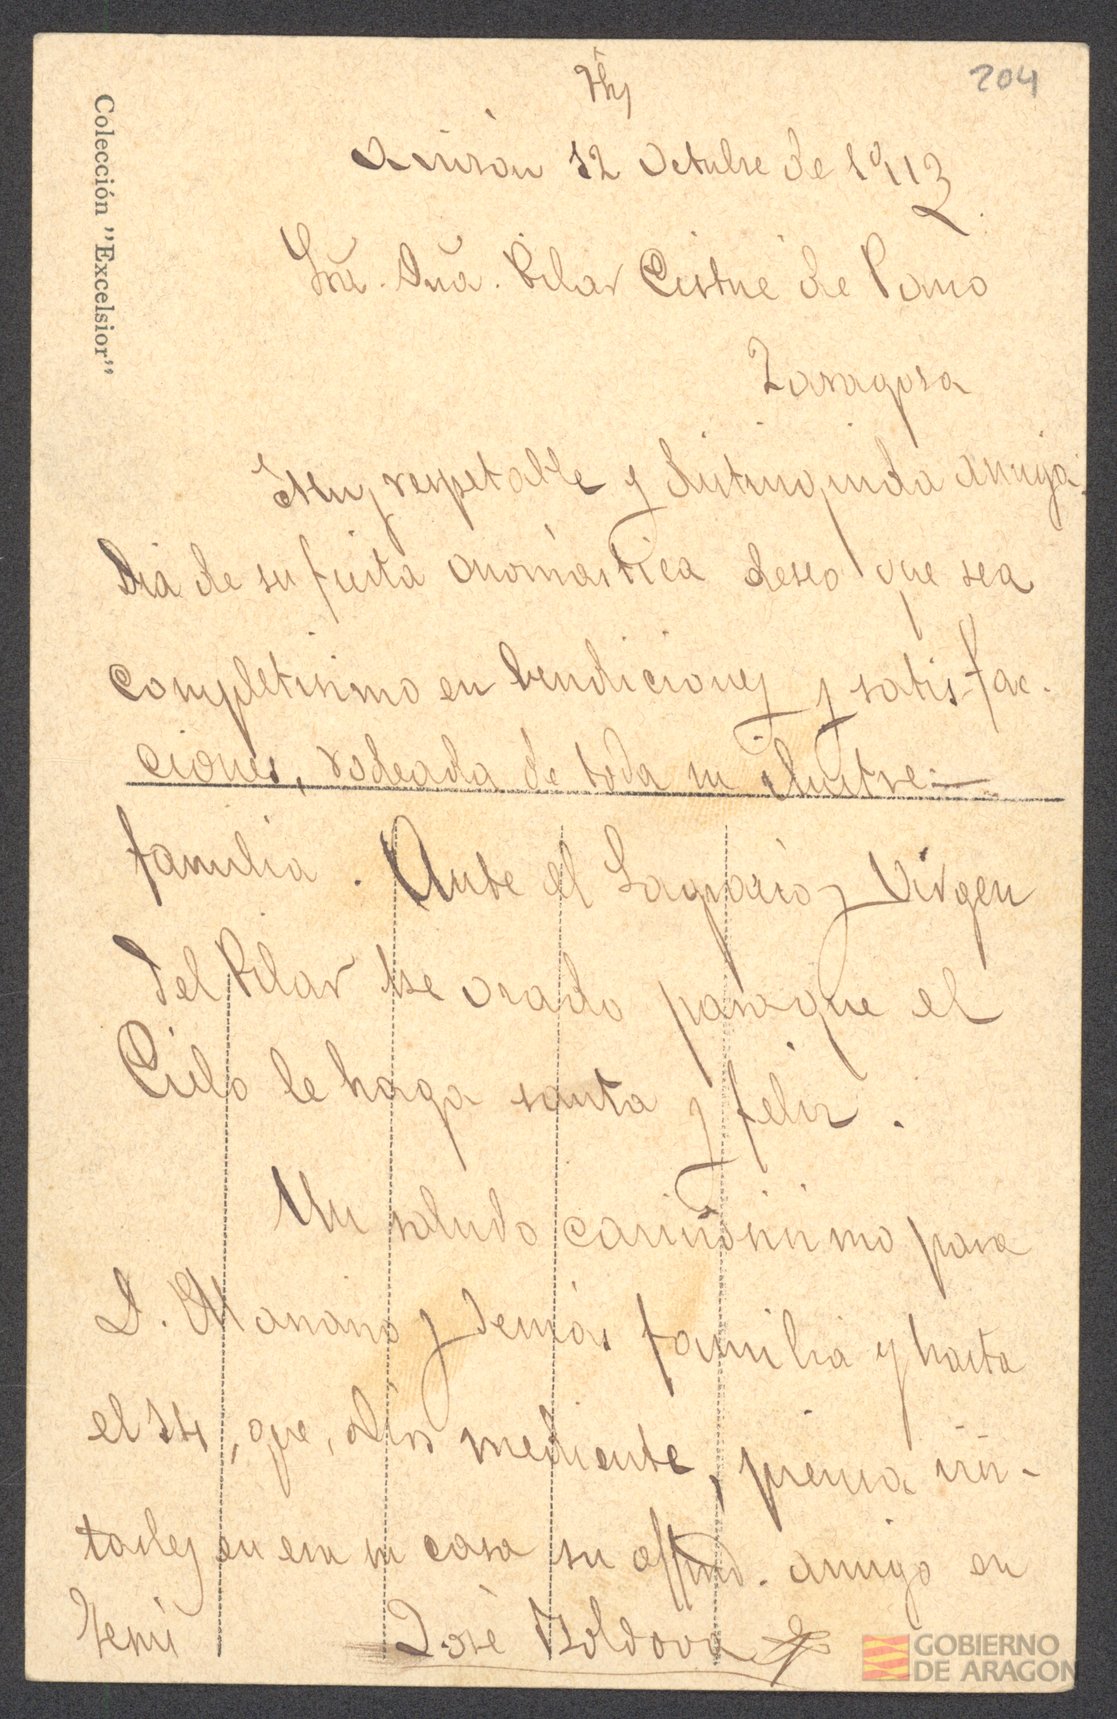 204
Colección "Excelsior"
Jhs
12 Octubre de 1913
Sra. Dña. Pilar Cistué de Pano
Zaragoza
Muy respetable y distinguida amiga:
Dia de su fiesta onomástica deseo que sea
completisimo en bendiciones y satisfac-
ciones, rodeada de toda su ilustre
familia. Ante el Sagrario y Virgen
del Pilar he orado para que el
Cielo le haga santa y feliz.
Un saludo cariñosisimo para
D. Mariano y demás familia y hasta
el 14, que, Dios mediante, piensa visi-
tarles en esa su casa su affmo. amigo en
Jesús José Moldova
GOBIERNO
DE ARAGON